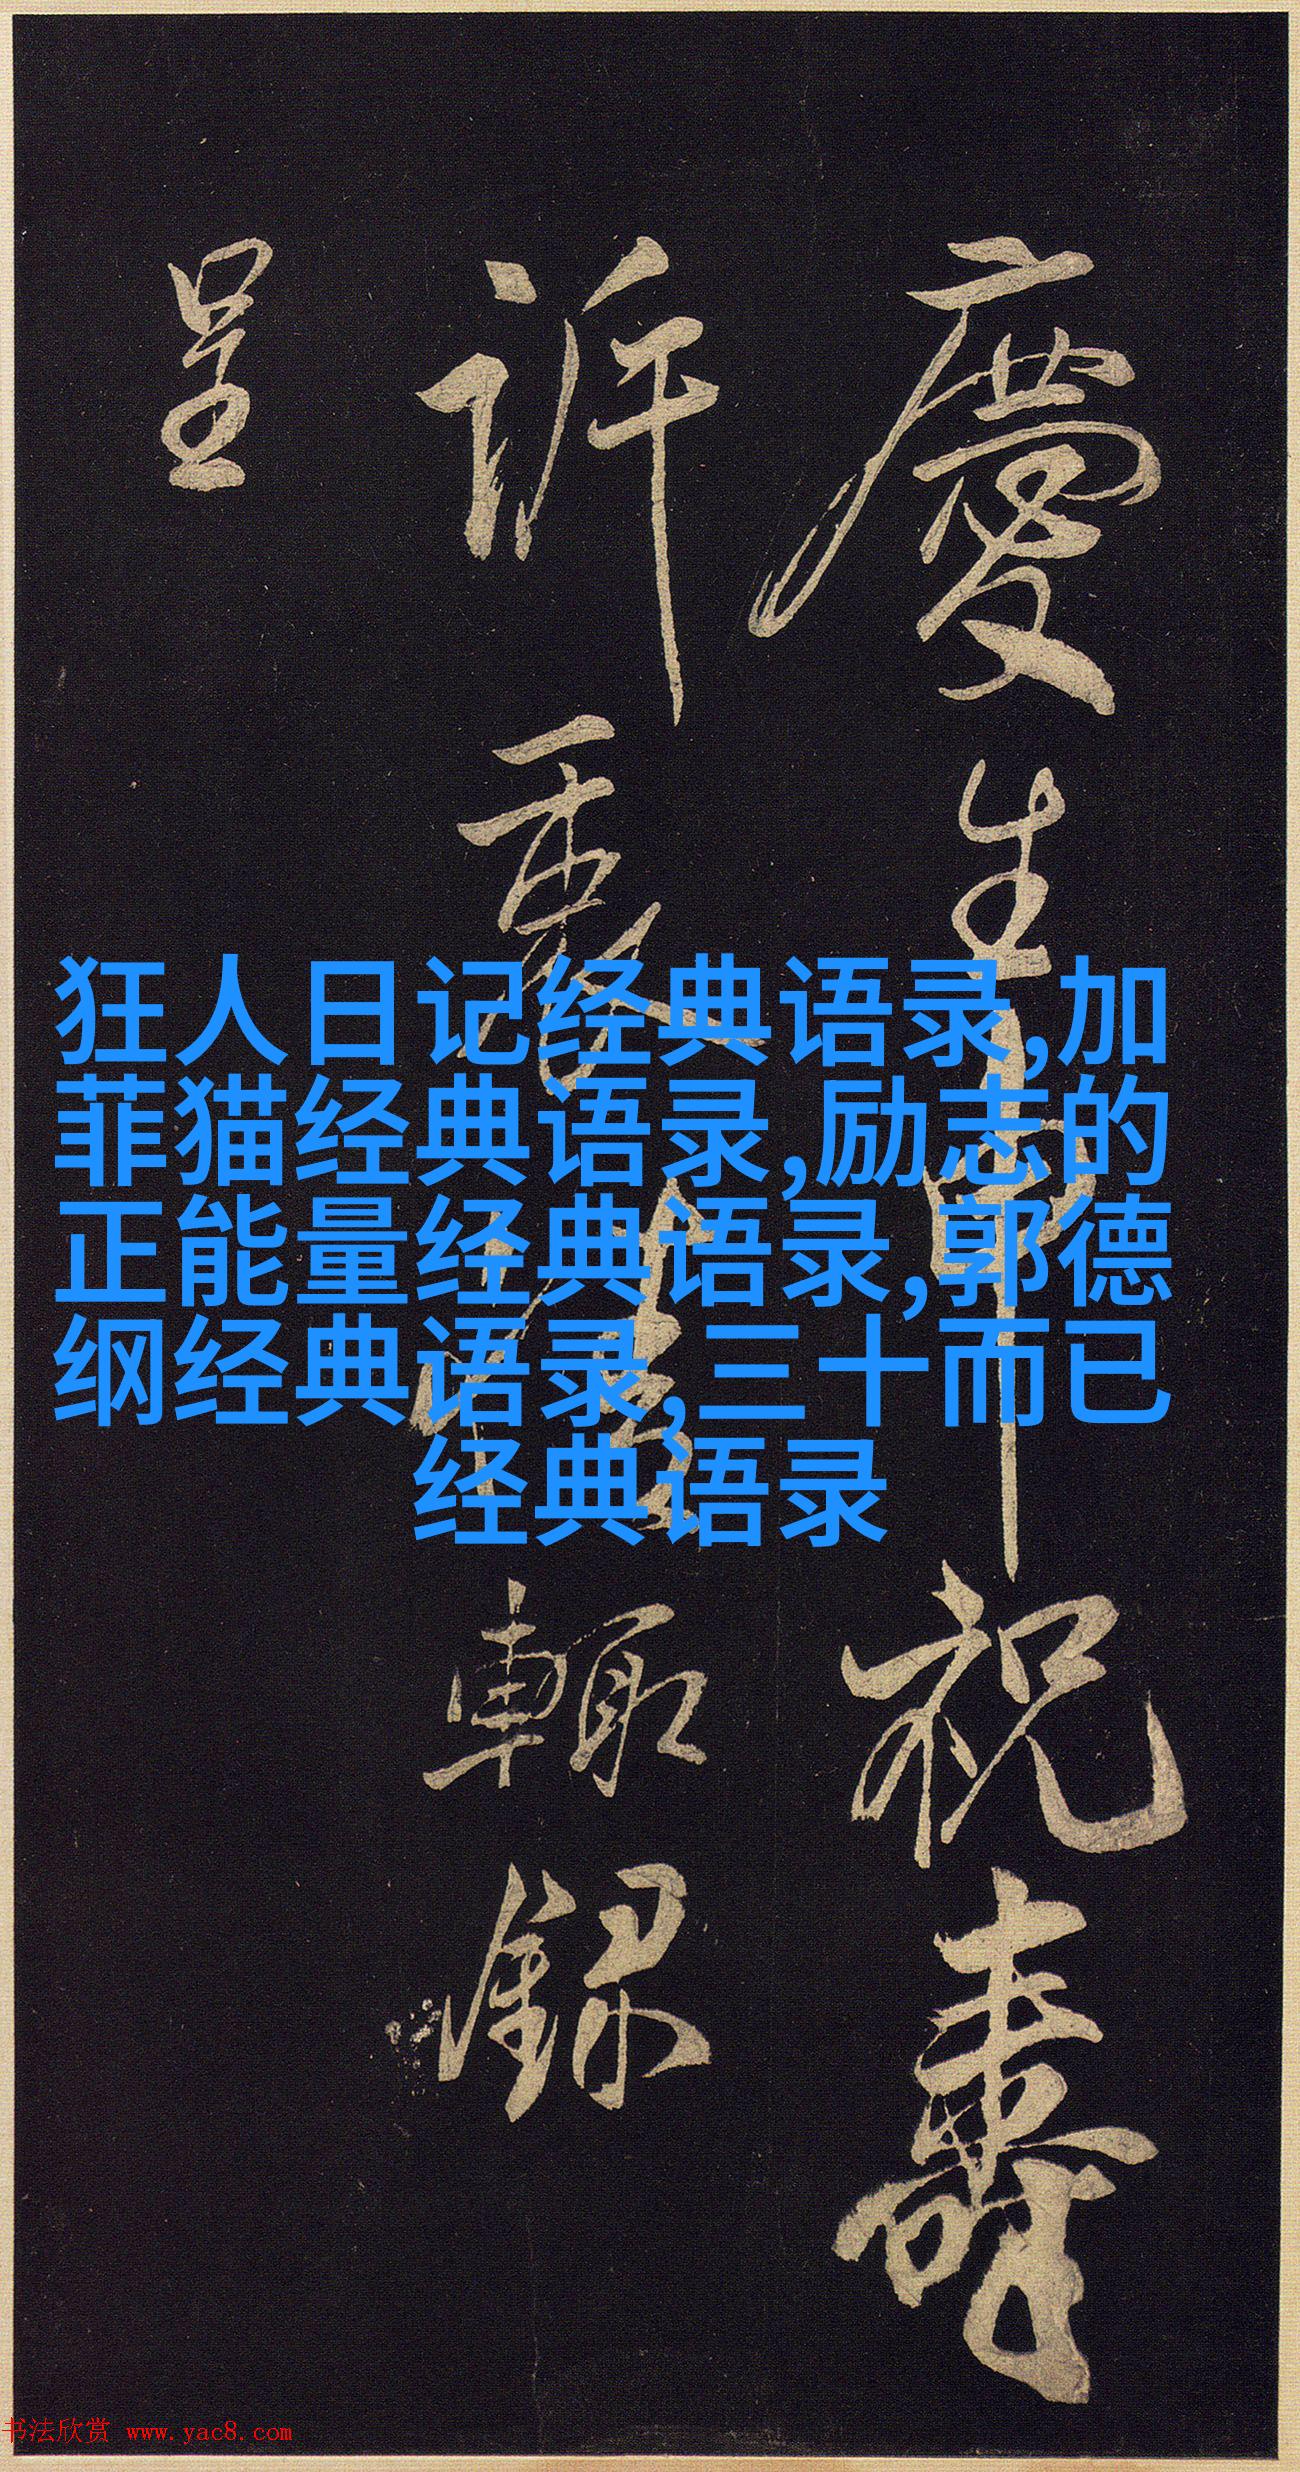 慶生申祝壽
訢裹懷輙録
呈
狂人日记经典语录,加
菲猫经典语录,励志的
正能量经典语录,郭德
纲经典语录,三十而已
经典语录
书法欣赏 www.yac8.com